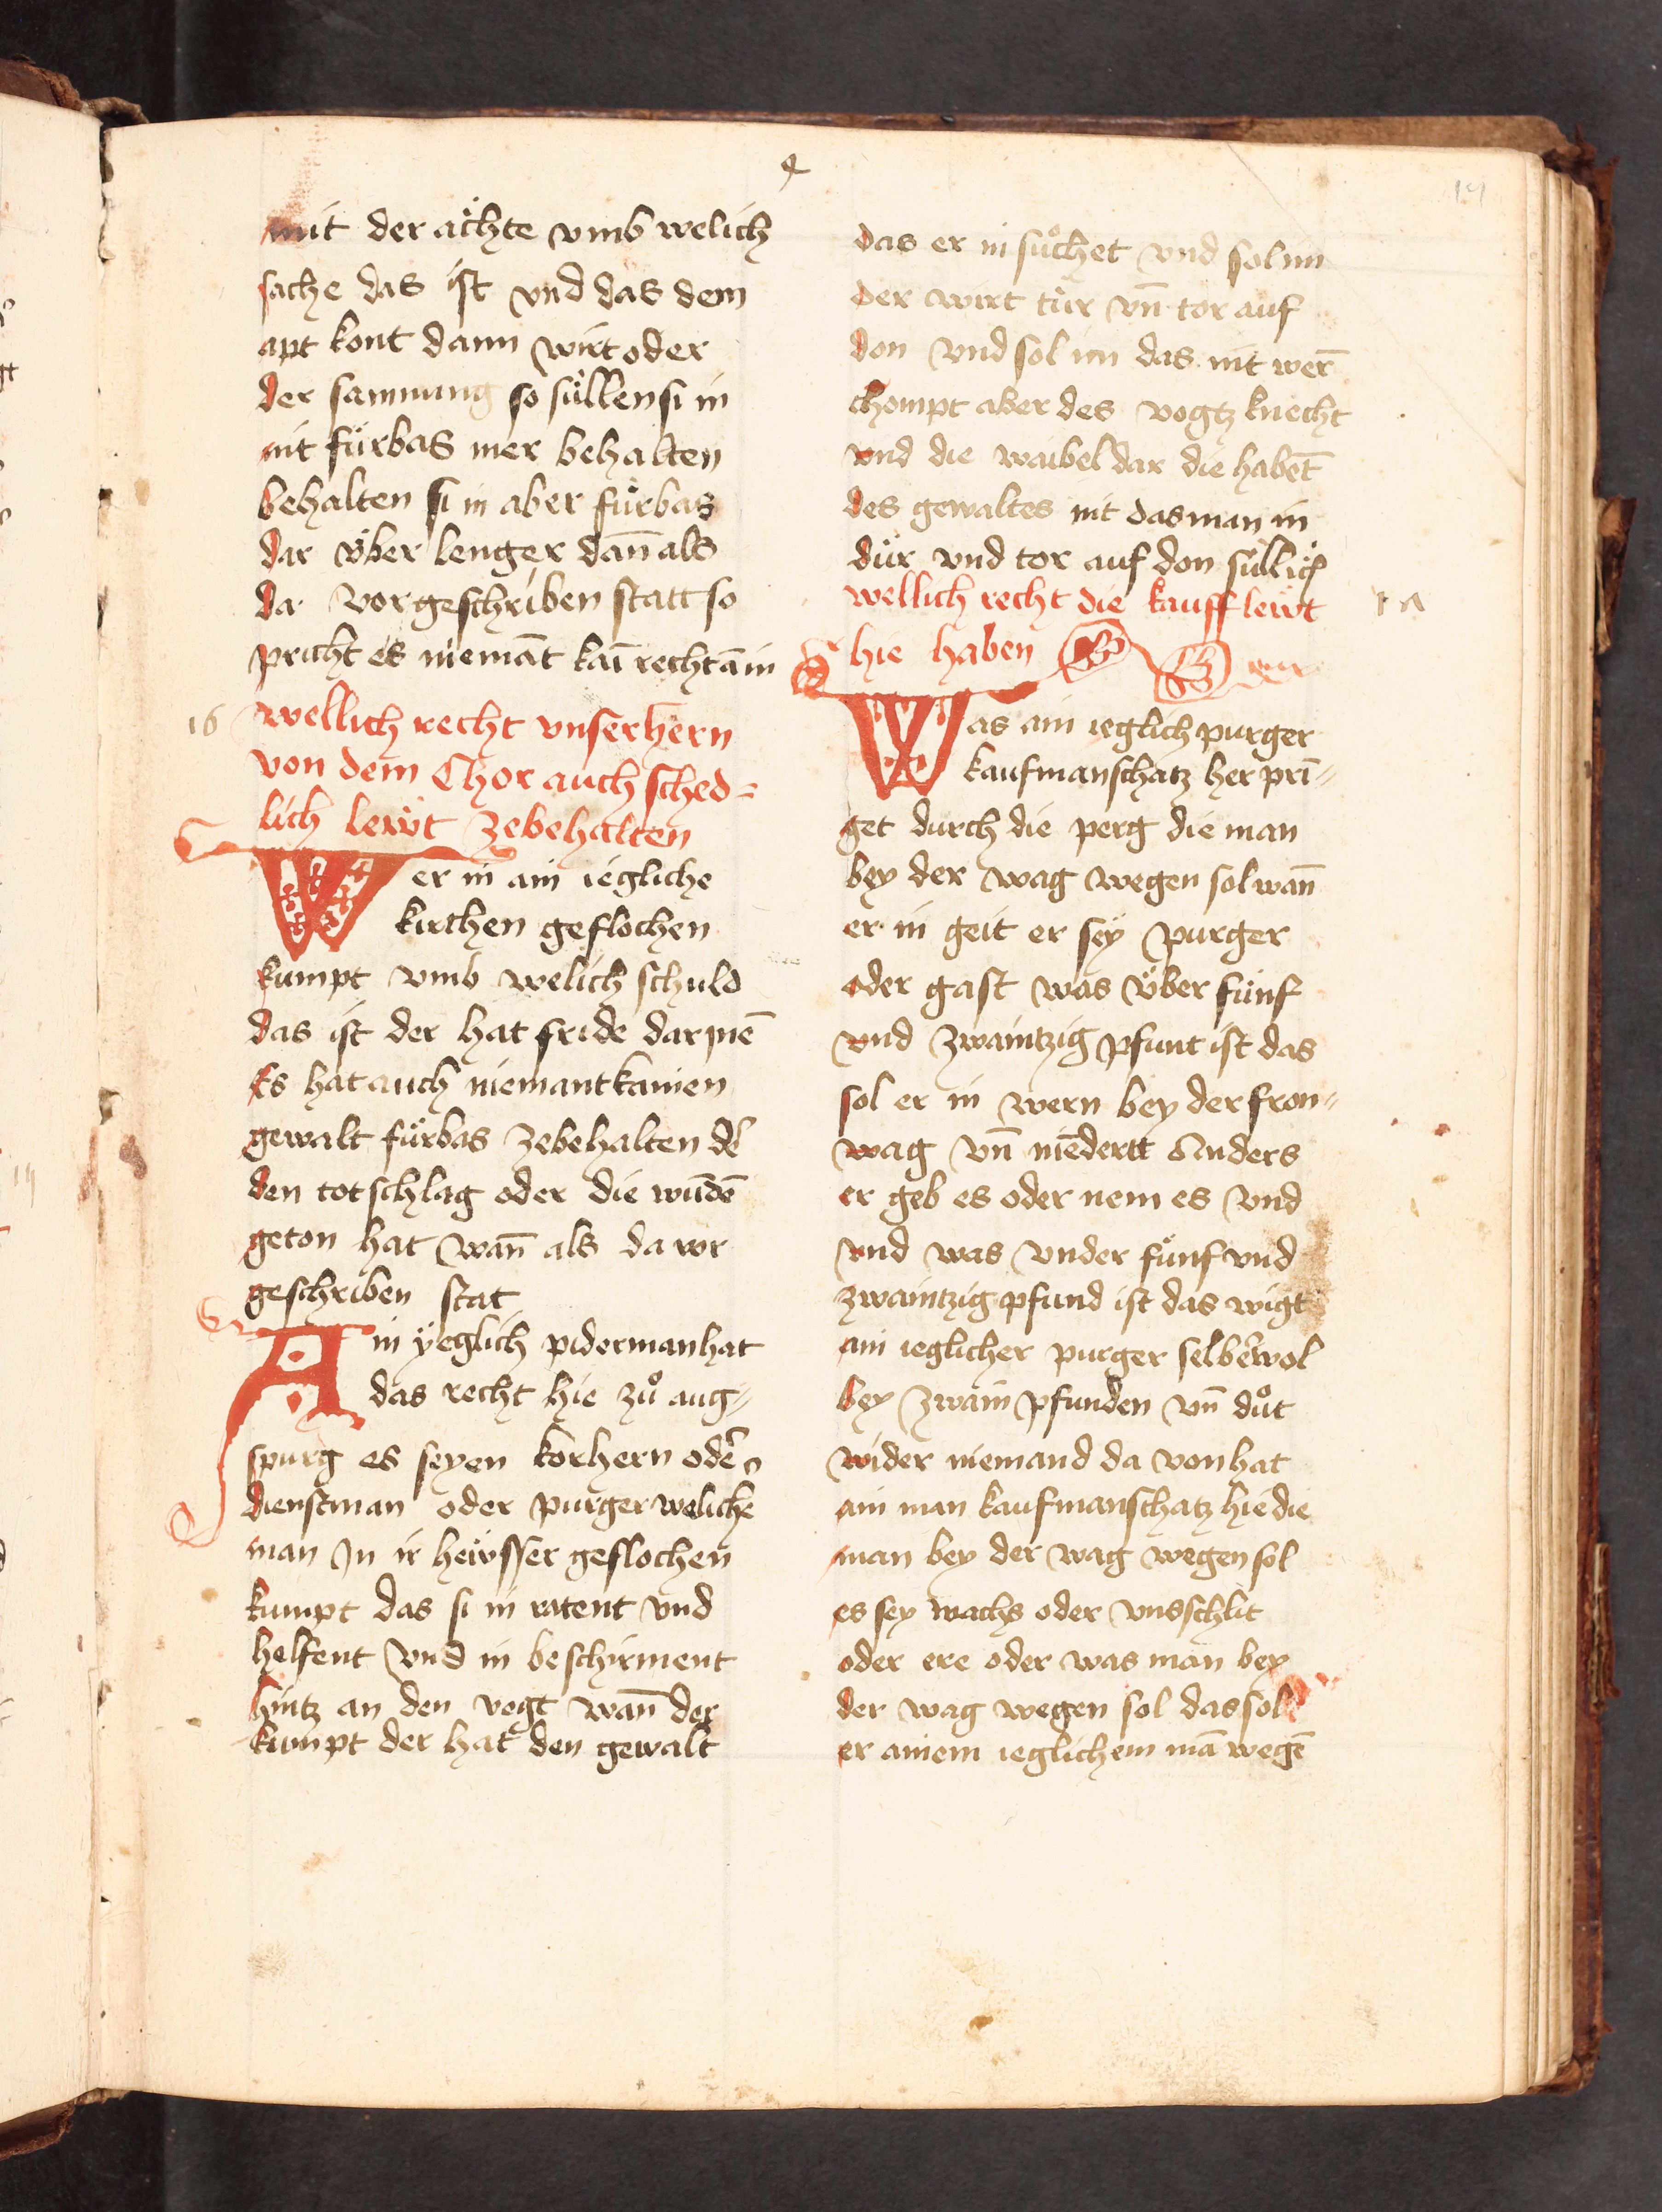 4
mit der ächte vmb welich
sache das ist vnd das dem
apt kont dann wirt oder
der samnung so süllen si in
nit fürbas mer behalten
behalten si in aber fürbas
dar über lenger dan̄ als
da vor geschriben statt so
pricht es niemāt kai recht ā in
16
wellich recht vnser hern
von dem Chor auch sched=
lich lewt zebehalten
Wer in ain iegliche
kirchen geflochen
kumpt vmb welich schuld
das ist der hat fride dar ine͞
Es hat auch niemant kainen
gewalt fürbas zebehalten de͛
den totschlag oder die wūde͞
geton hat wan̄ als da vor
geschriben stat
Ain yeglich piderman hat
das recht hie zů aug=
spurg es seyen korhern ode͛
dienstman oder purger weliche
man In ir hewsser geflochen
kumpt das si in ratent vnd
helfent vnd in beschirment
hintz an den vogt wan̄ der
kumpt der hat den gewalt
das er in sůchet vnd sol im
der wirt tür vn̄ tor auf
don vnd sol im das nit wer̄
chompt aber des vogtz knecht
vnd die waibel dar die habe͞t
des gewaltes nit das man in
dür vnd tor auf don süllich
wellich recht die kauff lewt
hie haben
Was ain ieglich purger
kaufmanschatz her pri͞=
get durch die perg die man
bey der wag wegen sol wan̄
er in geit er sey purger
oder gast was über fünf
vnd zwaintzig pfunt ist das
sol er in wern bey der fron=
wag vn̄ nie͞dertt Anders
er geb es oder nem es vnd
vnd was vnder fünf vnd
zwaintzig pfund ist das wigt
ain ieglicher purger selbe͛ wol
bey zwain pfunden vn̄ důt
wider niemand da von hat
ain man kaufmanschatz hie die
man bey der wag wegen sol
es sey wachs oder vnschlit
oder ere oder was man bey
der wag wegen sol das sol
er ainem ieglichem mā wege͞